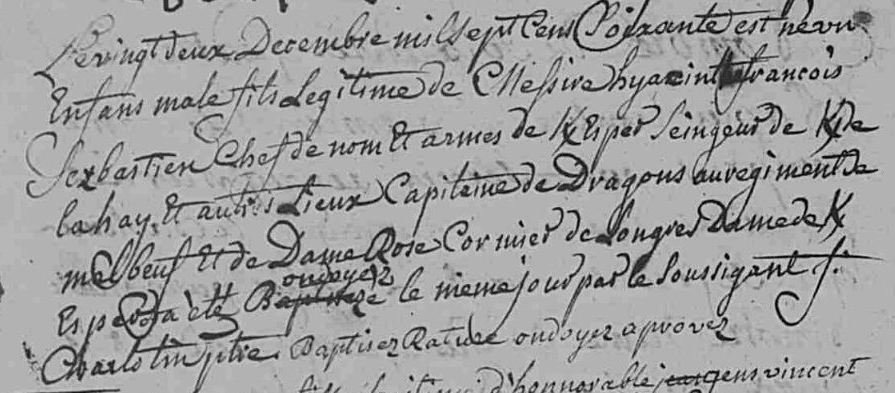 Le vingt deux Decembre mil sept Cens Soixante est né vn
Enfans male fils Legitime de Messire hyacinthe francois
Sexbastien Chef de nom Et armes de K Esper Seingeur de K de
lahay Et autres Lieux Capiteine de Dragons au regiment de
melbeuf Et de Dame Rose Cormier de Longres Dame de K
Esper à été Baptize ondoyez le meme jour par le Soussigant f.
ptre. Baptisez Rature ondoyez aprovez
d'honnorable gens vincent